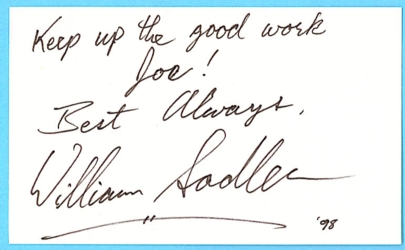 Keep up the good work
Joe!
Best Always,
William Sadler
'98